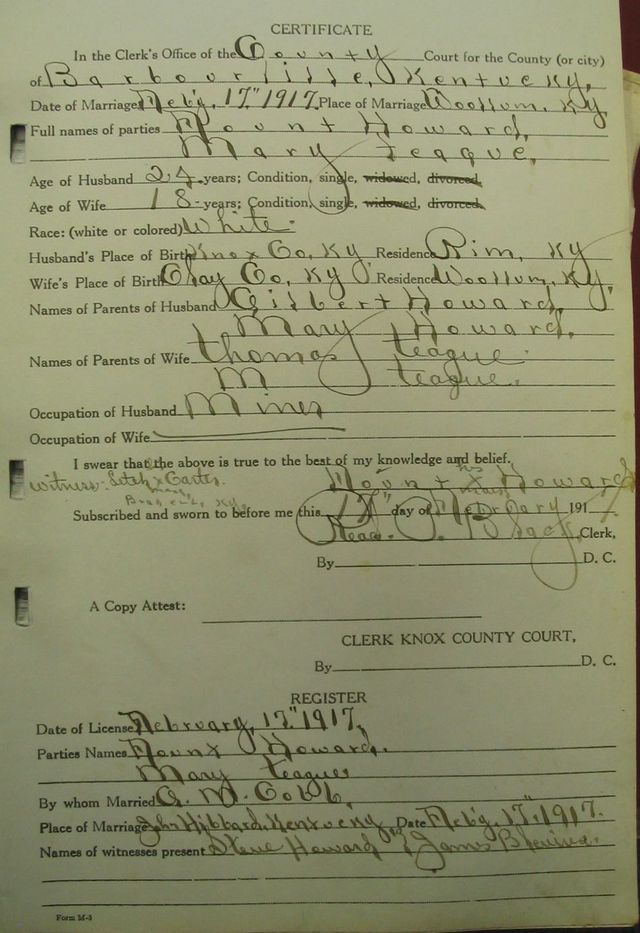 CERTIFICATE
In the Clerk's Office of the County Court for the County (or city)
of Barbourville, Kentucky,
Date of Marriage Feb'y, 17" 1917, Place of Marriage Woollum, Ky
Full names of parties Howard,
Mary Teague,
Age of Husband 24 years; Condition, single, widowed, divorced,
Age of Wife 18 years; Condition, single, widowed, divorced.
Race: (white or colored) White
Husband's Place of Birth Knox Co, Ky Residence Rim, Ky
Wife's Place of Birth Clay Co, Ky, Residence Woollum, Ky,
Names of Parents of Husband Gilbert Howard,
Mary Howard,
Names of Parents of Wife Thomas Teague
M Teague.
Occupation of Husband Miner
Occupation of Wife
I swear that the above is true to the best of my knowledge and belief.
Witness his x Howard
mark
Subscribed and sworn to before me this 17" day of February 1917
Read. Clerk,
By D. C.
A Copy Attest:
CLERK KNOX COUNTY COURT,
By D. C.
REGISTER
Date of License February, 17" 1917,
Parties Names Howard.
Mary Teague
By whom Married Cobb,
Place of Marriage Hibbard, Kentucky Date Feb'y, 17", 1917.
Names of witnesses present Steve Howard & James
Form M-3